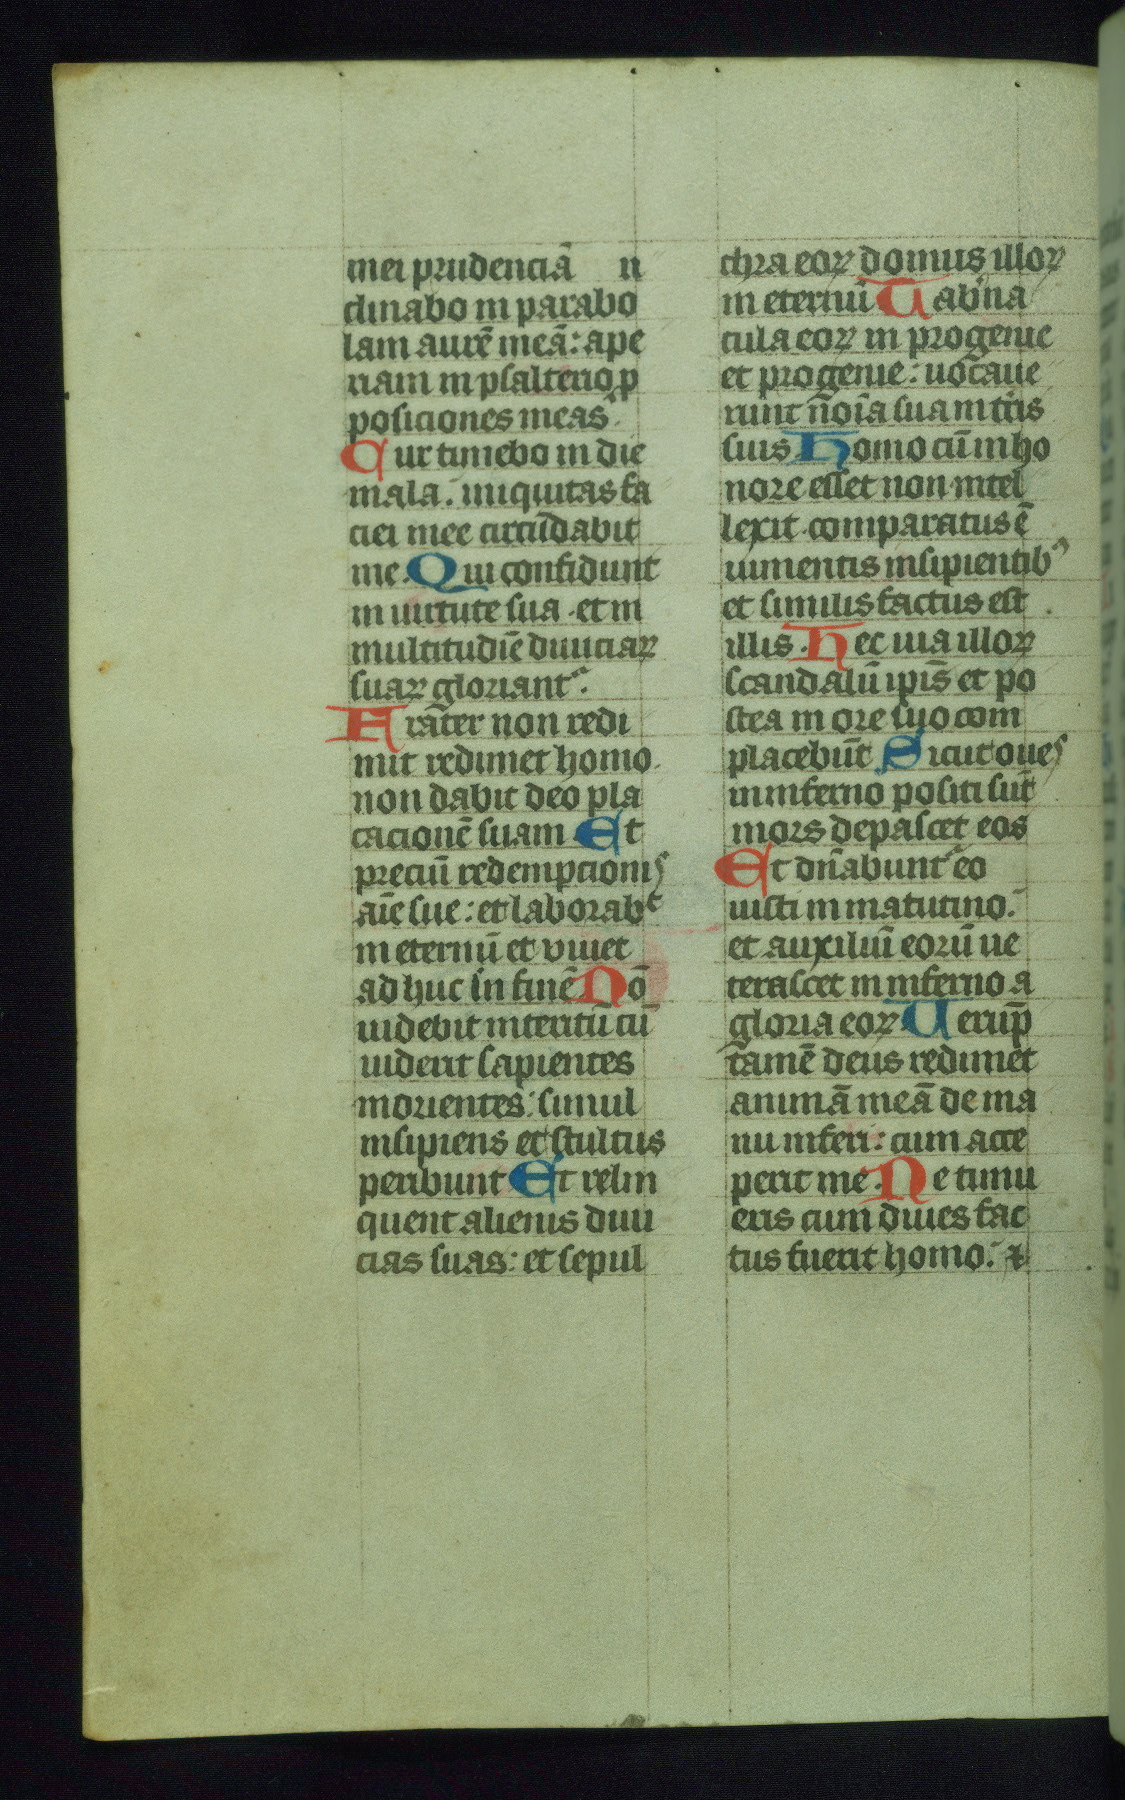 mei prudenciā n
clinabo in parabo
lam aurē meā: ape
riam in psalterio p
posiciones meas.
Cur timebo in die
mala: iniquitas fa
ciei mee circūdabit
me. Qui confidunt
in uirtute sua. et in
multitudīe diuiciaꝝ
suaꝝ gloriant᷑.
Frāter non redi
mit redimet homo.
non dabit deo pla
cacionē suam Et
preciū redempcionis
aīe sue: et laborabᵗ
in eternū et viuet
ad huc in finē Nō
uidebit interitū cū
uiderit sapientes
morientes: simul
insipiens et stultus
peribunt Et relin
quent alienis diui
cias suas: et sepul
chra eoꝝ domus illoꝝ
in eternū Tab'na
cula eoꝝ in progenie
et progenie: uocaue
runt nōīa sua in tris
suis Homo cū in ho
nore esset non intel
lexit comparatus ē
iumentis insipientibꝰ
et similis factus est
illis. Hec uia illoꝝ
scandalū ipīs et po
stea in ore suo com
placebūt Sicut oues
in inferno positi sūt
mors depascet eos
Et dn̄abunt᷑ eo
iusti in matutino:
et auxiliū eorū ue
terascet in inferno a
gloria eoꝝ Uerūp
tamē deus redimet
animā meā de ma
nu inferi: cum acce
perit me. Ne timu
eris cum diues fac
tus fuerit homo: ⁊